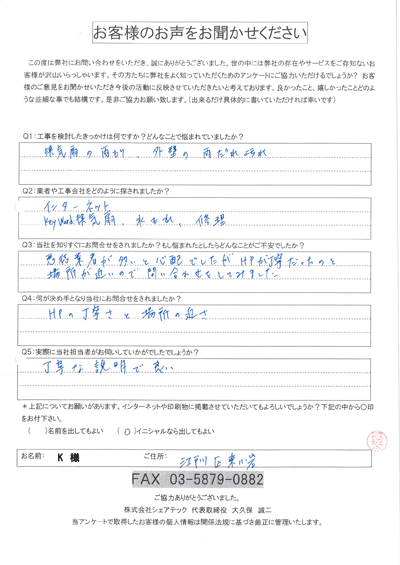 お客様のお声をお聞かせください
この度は弊社にお問い合わせをいただき、誠にありがとうございました。世の中には弊社の存在やサービスをご存知ないお
客様が沢山いらっしゃいます。その方たちに弊社をよく知っていただくためのアンケートにご協力いただけるでしょうか？ お客
様のご意見をお聞かせいただき今後の活動に反映させていただきたいと考えております。良かったこと、嬉しかったことどのよう
な些細な事でも結構です。是非ご協力お願い致します。（出来るだけ具体的に書いていただければ幸いです）
Q1：工事を検討したきっかけは何ですか？どんなことで悩まれていましたか？
換気扇の雨もり、外壁の雨だれ汚れ
Q2：業者や工事会社をどのように探されましたか？
インターネット
Key Word:換気扇、水もれ、修理
Q3：当社を知りすぐにお問合せをされましたか？もし悩まれたとしたらどんなことがご不安でしたか？
悪徳業者が多いと心配でしたがHPが丁寧だったのと
場所が近いので問い合わせをしてみました
Q4：何が決め手となり当社にお問合せをされましたか？
HPの丁寧さと場所の近さ
Q5：実際に当社担当者がお伺いしていかがでしたでしょうか？
丁寧な説明で良い
＊上記についてお願いがあります。インターネットや印刷物に掲載させていただいてもよろしいでしょうか？下記の中から〇印
をお付下さい。
（　）名前を出してもよい　（○）イニシャルなら出してもよい
お名前：　K 様　ご住所：　江戸川区東小岩
FAX 03-5879-0882
ご協力ありがとうございました。
株式会社シェアテック 代表取締役 大久保 誠二
当アンケートで取得したお客様の個人情報は関係法規に基づき厳正に管理いたします。